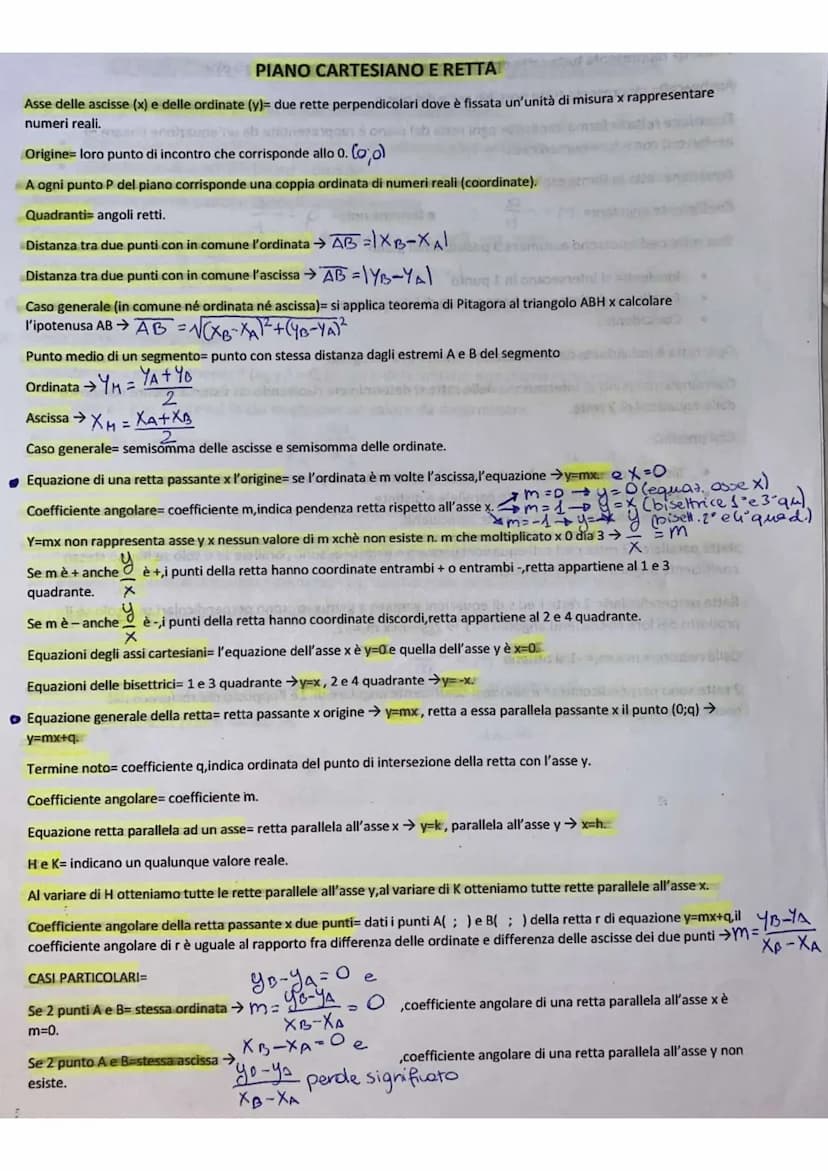 PIANO CARTESIANO E RETTA
Asse delle ascisse (x) e delle ordinate (y)= due rette perpendicolari dove è fissata un'unità di misura x rappresentare
numeri reali.
Origine= loro punto di incontro che corrisponde allo 0. (0;0)
A ogni punto P del piano corrisponde una coppia ordinata di numeri reali (coordinate).
Quadranti= angoli retti.
Distanza tra due punti con in comune l'ordinata → AB =|XB-XA|
Distanza tra due punti con in comune l'ascissa → AB =|YB-YA|
Caso generale (in comune né ordinata né ascissa)= si applica teorema di Pitagora al triangolo ABH x calcolare
l'ipotenusa AB → AB =√(XB-XA)²+(YB-YA)²
Punto medio di un segmento= punto con stessa distanza dagli estremi A e B del segmento
Ordinata → YM = YA+YB / 2
Ascissa → XM = XA+XB / 2
Caso generale= semisomma delle ascisse e semisomma delle ordinate.
Equazione di una retta passante x l'origine= se l'ordinata è m volte l'ascissa,l'equazione →y=mx. e X=0
Coefficiente angolare= coefficiente m,indica pendenza retta rispetto all'asse x. m=0 → y=0 (equaz. asse x)
m=1 → y=x (bisettrice 1° e 3° qu.)
m=-1 → y=-x (bisett. 2° e 4° quad.)
Y=mx non rappresenta asse y x nessun valore di m xchè non esiste n. m che moltiplicato x 0 dia 3 → y/x = m
Se m è + anche y/x è +,i punti della retta hanno coordinate entrambi + o entrambi -,retta appartiene al 1 e 3
quadrante.
Se m è – anche y/x è -,i punti della retta hanno coordinate discordi,retta appartiene al 2 e 4 quadrante.
Equazioni degli assi cartesiani= l'equazione dell'asse x è y=0 e quella dell'asse y è x=0.
Equazioni delle bisettrici= 1 e 3 quadrante →y=x , 2 e 4 quadrante →y= -x.
Equazione generale della retta= retta passante x origine → y=mx , retta a essa parallela passante x il punto (0;q) →
y=mx+q.
Termine noto= coefficiente q,indica ordinata del punto di intersezione della retta con l'asse y.
Coefficiente angolare= coefficiente m.
Equazione retta parallela ad un asse= retta parallela all'asse x → y=k , parallela all'asse y → x=h.
H e K= indicano un qualunque valore reale.
Al variare di H otteniamo tutte le rette parallele all'asse y,al variare di K otteniamo tutte rette parallele all'asse x.
Coefficiente angolare della retta passante x due punti= dati i punti A( ; ) e B( ; ) della retta r di equazione y=mx+q,il
coefficiente angolare di r è uguale al rapporto fra differenza delle ordinate e differenza delle ascisse dei due punti →m= YB-YA / XB-XA
CASI PARTICOLARI=
yB-yA=0 e
Se 2 punti A e B= stessa ordinata → m= yB-yA / XB-XA = 0 ,coefficiente angolare di una retta parallela all'asse x è
m=0.
XB-XA=0 e
Se 2 punto A e B=stessa ascissa → yB-yA / XB-XA perde significato ,coefficiente angolare di una retta parallela all'asse y non
esiste.